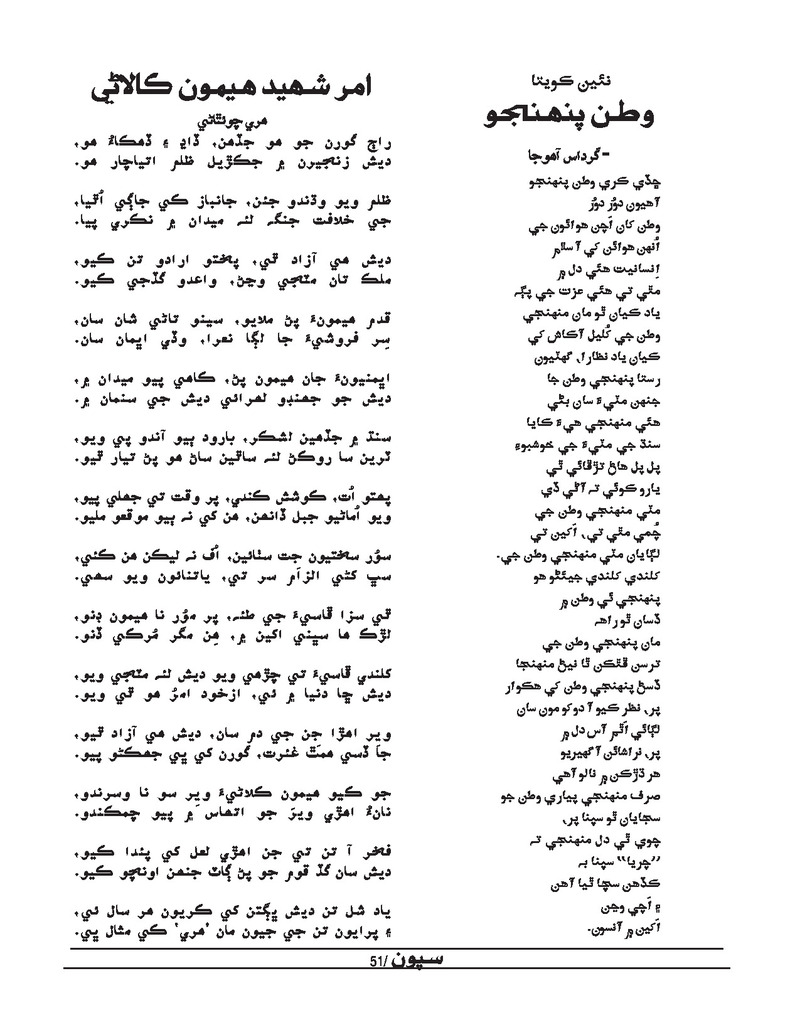 نئين ڪويتا
وطن پنهنجو
-گرداس آهوجا
ڇڏي ڪري وطن پنهنجو
آهيون دوُر دوُر
وطن کان اَچن هوائون جي
اُنهن هوائن کي آ سلام
اِنسانيت هئي دل ۾
مٿي تي هئي عزت جي پڳہ
ياد ڪيان ٿو مان منهنجي
وطن جي کُليل آڪاش کي
ڪيان ياد نظارا، گهٽيون
رستا پنهنجي وطن جا
جنهن مٽيءَ سان بڻي
هئي منهنجي هيءَ ڪايا
سنڌ جي مٽيءَ جي خوشبوءِ
پل پل هاڻ تڙڦائي ٿي
يارو ڪوئي تہ آڻي ڏي
مٽي منهنجي وطن جي
چُمي مٿي تي، اَکين تي
لڳايان مٽي منهنجي وطن جي.
کلندي کلندي جيئڻو هو
پنهنجي ئي وطن ۾
ڏسان ٿو راهہ
مان پنهنجي وطن جي
ترسن ڦٿڪن ٿا نيڻ منهنجا
ڏسڻ پنهنجي وطن کي هڪوار
پر، نظر ڪيو آ دوکو مون سان
لڳائي اَٿم آس دل ۾
پر، نراشائن آ گهيريو
هر ڌڙڪن ۾ نالو آهي
صرف منهنجي پياري وطن جو
سجايان ٿو سپنا پر،
چوي ٿي دل منهنجي تہ
”چريا“ سپنا بہ
ڪڏهن سچا ٿيا آهن
۽ اَچي وڃن
اَکين ۾ آنسون.
امر شهيد هيمون ڪالاڻي
هري چوئٿاڻي
راڄ گورن جو هو جڏهن، ڏاڍ ۽ ڏهڪاءُ هو،
ديش زنجيرن ۾ جڪڙيل ظلم اتياچار هو.
ظلم ويو وڌندو جئن، جانباز ڪي جاڳي اُٿيا،
جي خلافت جنگہ لئہ ميدان ۾ نڪري پيا.
ديش هي آزاد ٿي، پختو ارادو تن ڪيو،
ملڪ تان مٽجي وڃڻ، واعدو گڏجي ڪيو.
قدم هيمونءَ پڻ ملايو، سينو تاڻي شان سان،
سِر فروشيءَ جا لڳا نعرا، وڏي ايمان سان.
ايمنيونءَ جان هيمون پڻ، ڪاهي پيو ميدان ۾،
ديش جو جهنڊو لهرائي ديش جي سنمان ۾.
سنڌ ۾ جڏهين لشڪر، بارود ٻيو آندو پي ويو،
ٽرين سا روڪڻ لئہ ساٿين ساڻ هو پڻ تيار ٿيو.
پهتو اُت، ڪوشش ڪندي، پر وقت تي جهلي پيو،
ويو اُماڻيو جيل ڏانهن، هن کي نہ ٻيو موقعو مليو.
سوُر سختيون جت سٺائين، اُف نہ ليڪن هن ڪئي،
سڀ کڻي الزاَم سر تي، ياتنائون ويو سهي.
ٿي سزا ڦاسيءَ جي طئہ، پر موُر نا هيمون ڊنو،
لڙڪ ها سڀني اکين ۾، هِن مگر مُرڪي ڏنو.
کلندي ڦاسيءَ تي چڙهي ويو ديش لئہ مٽجي ويو،
ديش ڇا دنيا ۾ ئي، ازخود امرُ هو ٿي ويو.
وير اهڙا جن جي دم سان، ديش هي آزاد ٿيو،
جاَ ڏسي همتَ غئرت، گورن کي پي جهڪڻو پيو.
جو ڪيو هيمون ڪلاڻيءَ ويرِ سو نا وسرندو،
نانءُ اهڙي ويرَ جو اتهاس ۾ پيو چمڪندو.
فخر آ تن تي جن اهڙي لعل کي پئدا ڪيو،
ديش سان گڏ قوم جو پڻ ڳاٽ جنهن اونچو ڪيو.
ياد شل تن ديش ڀڳتن کي ڪريون هر سال ئي،
۽ پرايون تن جي جيون مان ’هري‘ ڪي مثال ڀي.
سپون /51